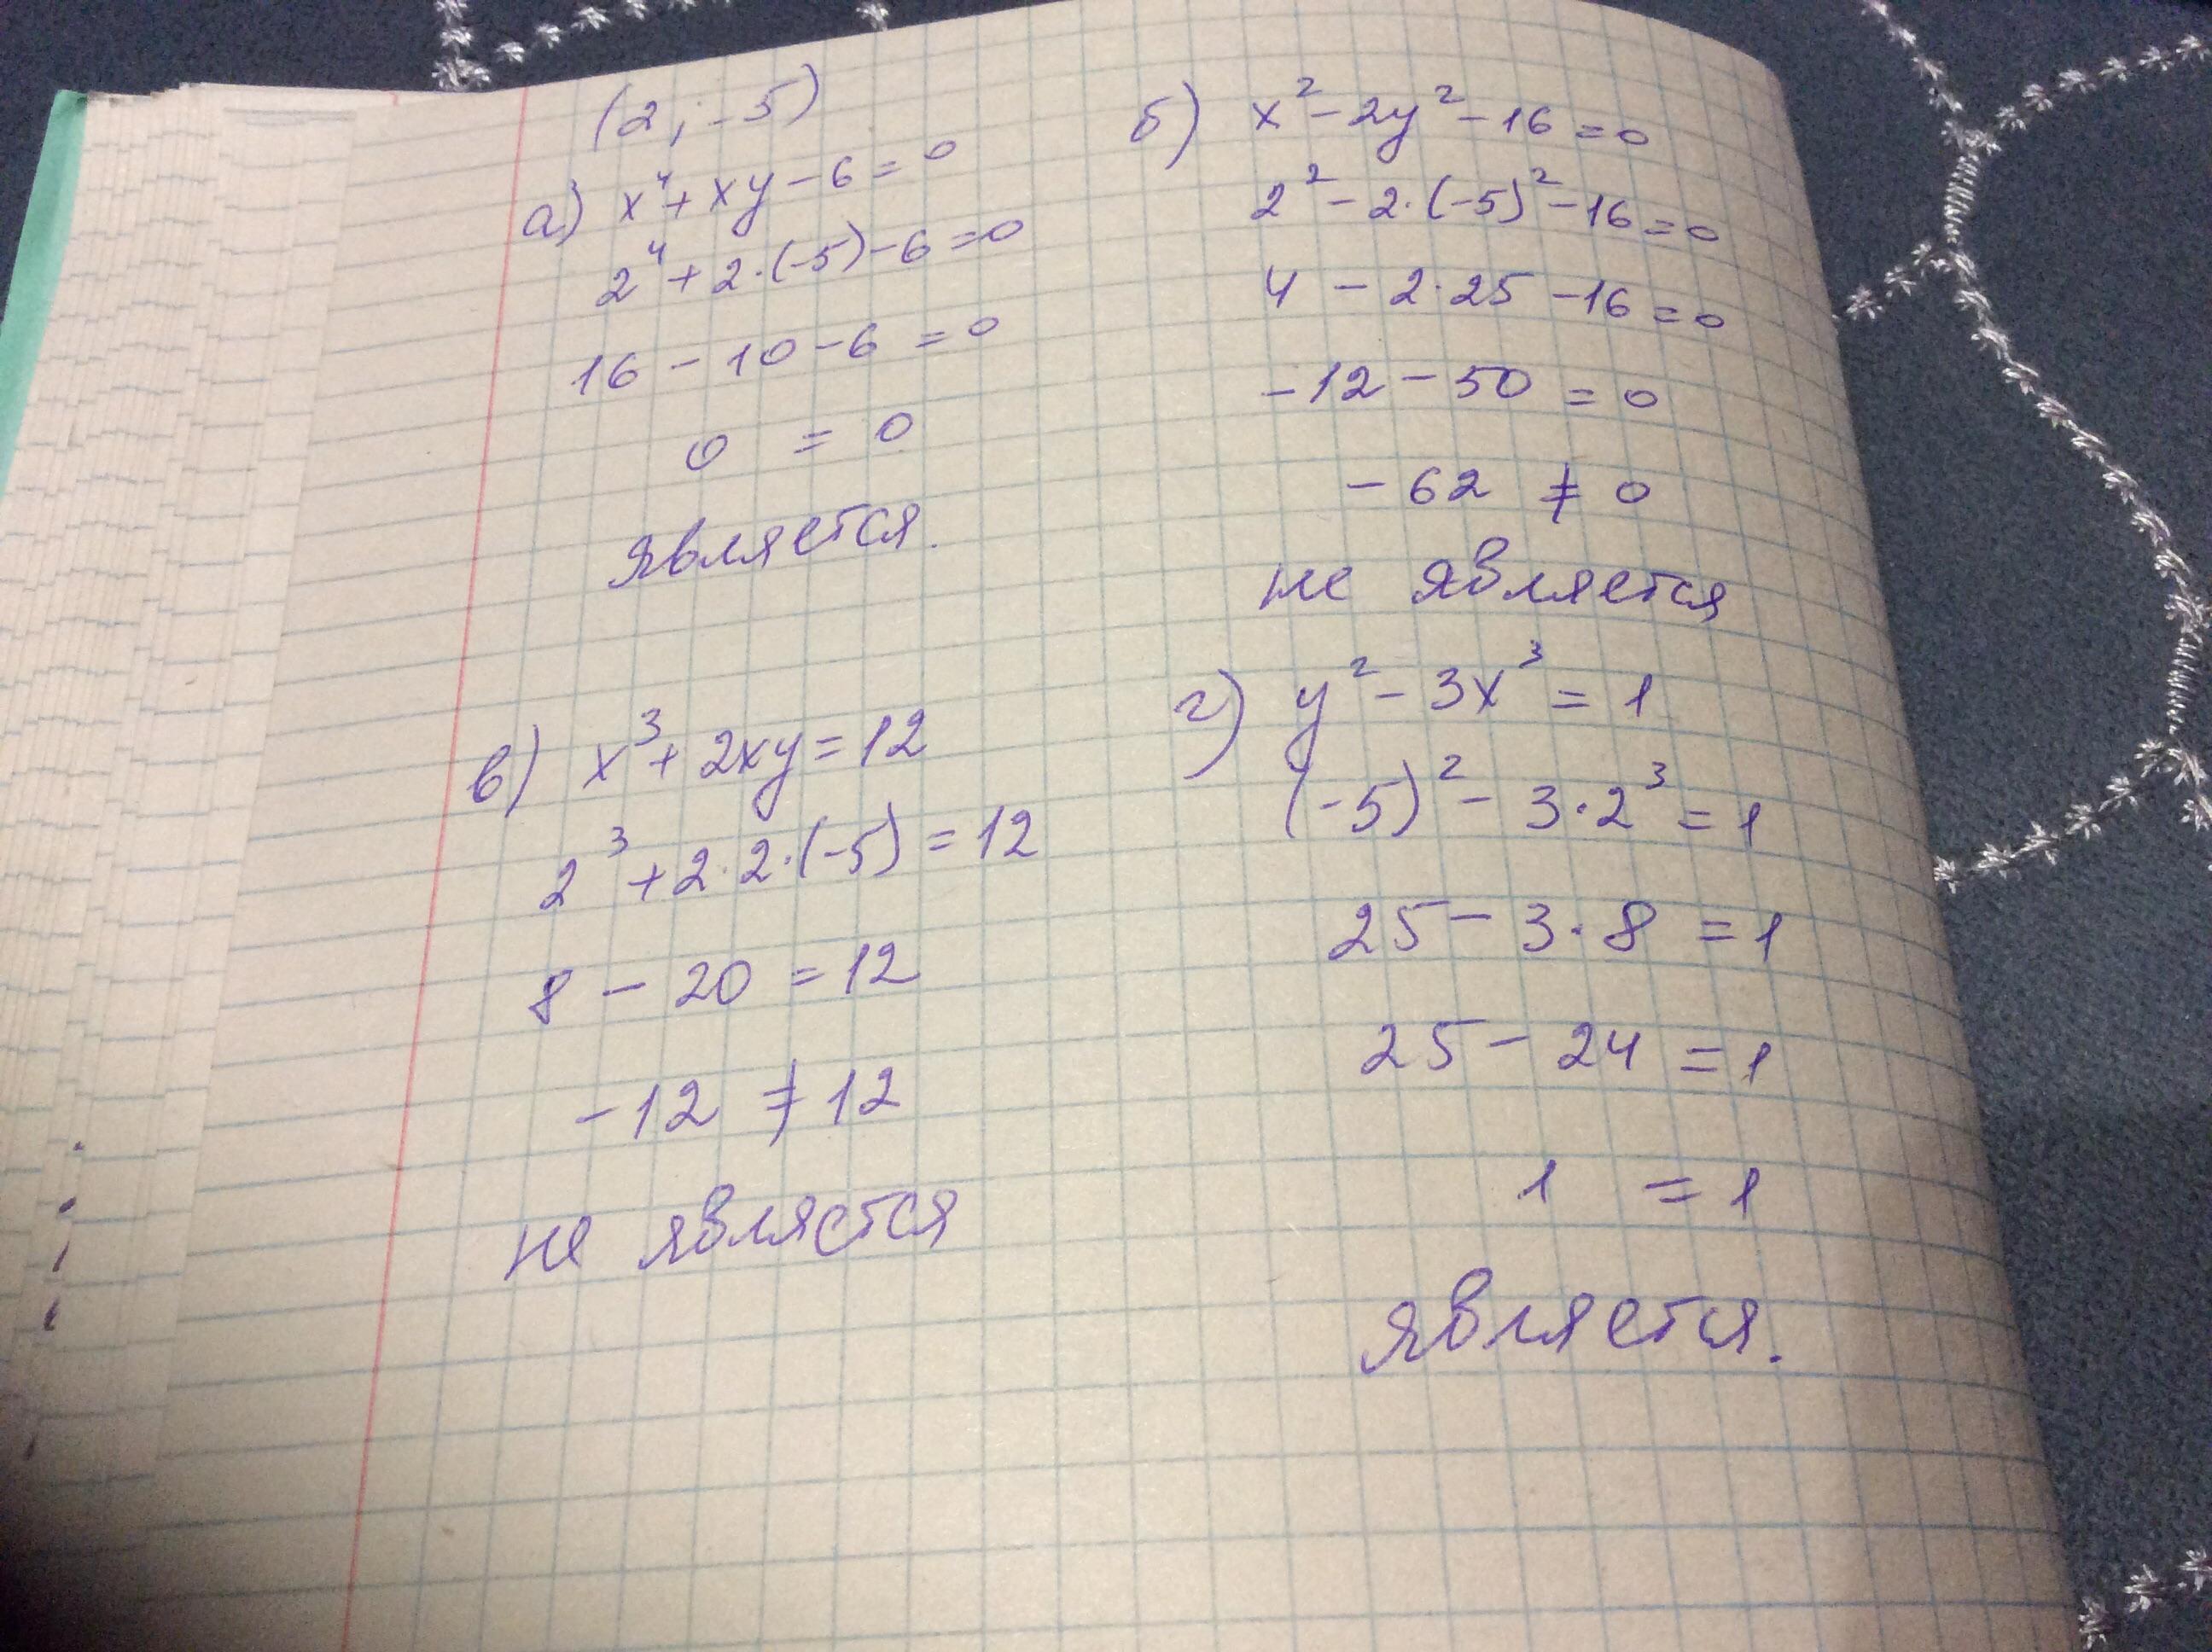 (2; -5)
а) x⁴ + xy - 6 = 0
2⁴ + 2·(-5) - 6 = 0
16 - 10 - 6 = 0
0 = 0
является.
б) x² - 2y² - 16 = 0
2² - 2·(-5)² - 16 = 0
4 - 2·25 - 16 = 0
-12 - 50 = 0
-62 ≠ 0
не является
в) x³ + 2xy = 12
2³ + 2·2·(-5) = 12
8 - 20 = 12
-12 ≠ 12
не является
г) y² - 3x³ = 1
(-5)² - 3·2³ = 1
25 - 3·8 = 1
25 - 24 = 1
1 = 1
является.